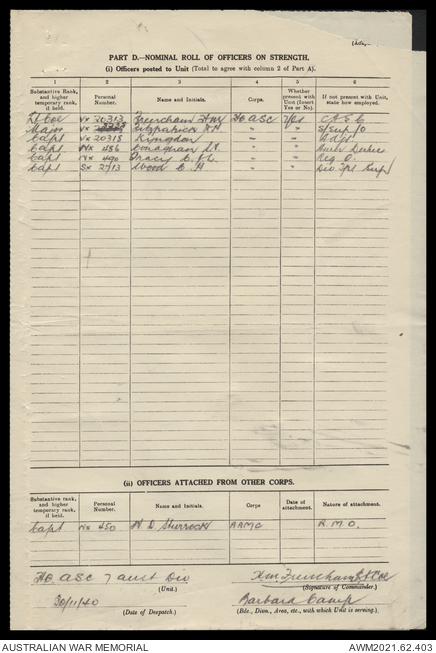 PART D.—NOMINAL ROLL OF OFFICERS ON STRENGTH.
(i) Officers posted to Unit (Total to agree with column 2 of Part A).
1 2 3 4 5 6
Substantive Rank, and higher temporary rank, if held. Personal Number. Name and Initials. Corps. Whether present with Unit (Insert Yes or No). If not present with Unit, state how employed.
Lt Col VX 20313 Frencham H M HQ ASC Yes
Major VX Fitzpatrick " " S/Sup/O
Capt VX 20315 Kingdon " " Adjt
Capt NX 456 Conaghan " "
Capt NX 490 Tracy " " Reg O.
Capt SX 2713 Wood C H " "
(ii) OFFICERS ATTACHED FROM OTHER CORPS.
Substantive rank, and higher temporary rank, if held. Personal Number. Name and Initials. Corps Date of attachment. Nature of attachment.
Capt NX 450 W D Sturrock AAMC R.M.O.
HQ ASC 7 Aust Div HM Frencham Lt Col
(Unit.) (Signature of Commander.)
30/11/40 Barbara Camp
(Date of Despatch.) (Bde., Divn., Area, etc., with which Unit is serving.)
AUSTRALIAN WAR MEMORIAL AWM2021.62.403